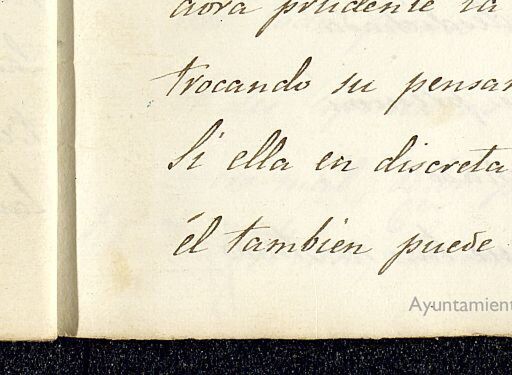 prudente la
trocando su pensar
Si ella en discreta
él tambien puede
Ayuntamient